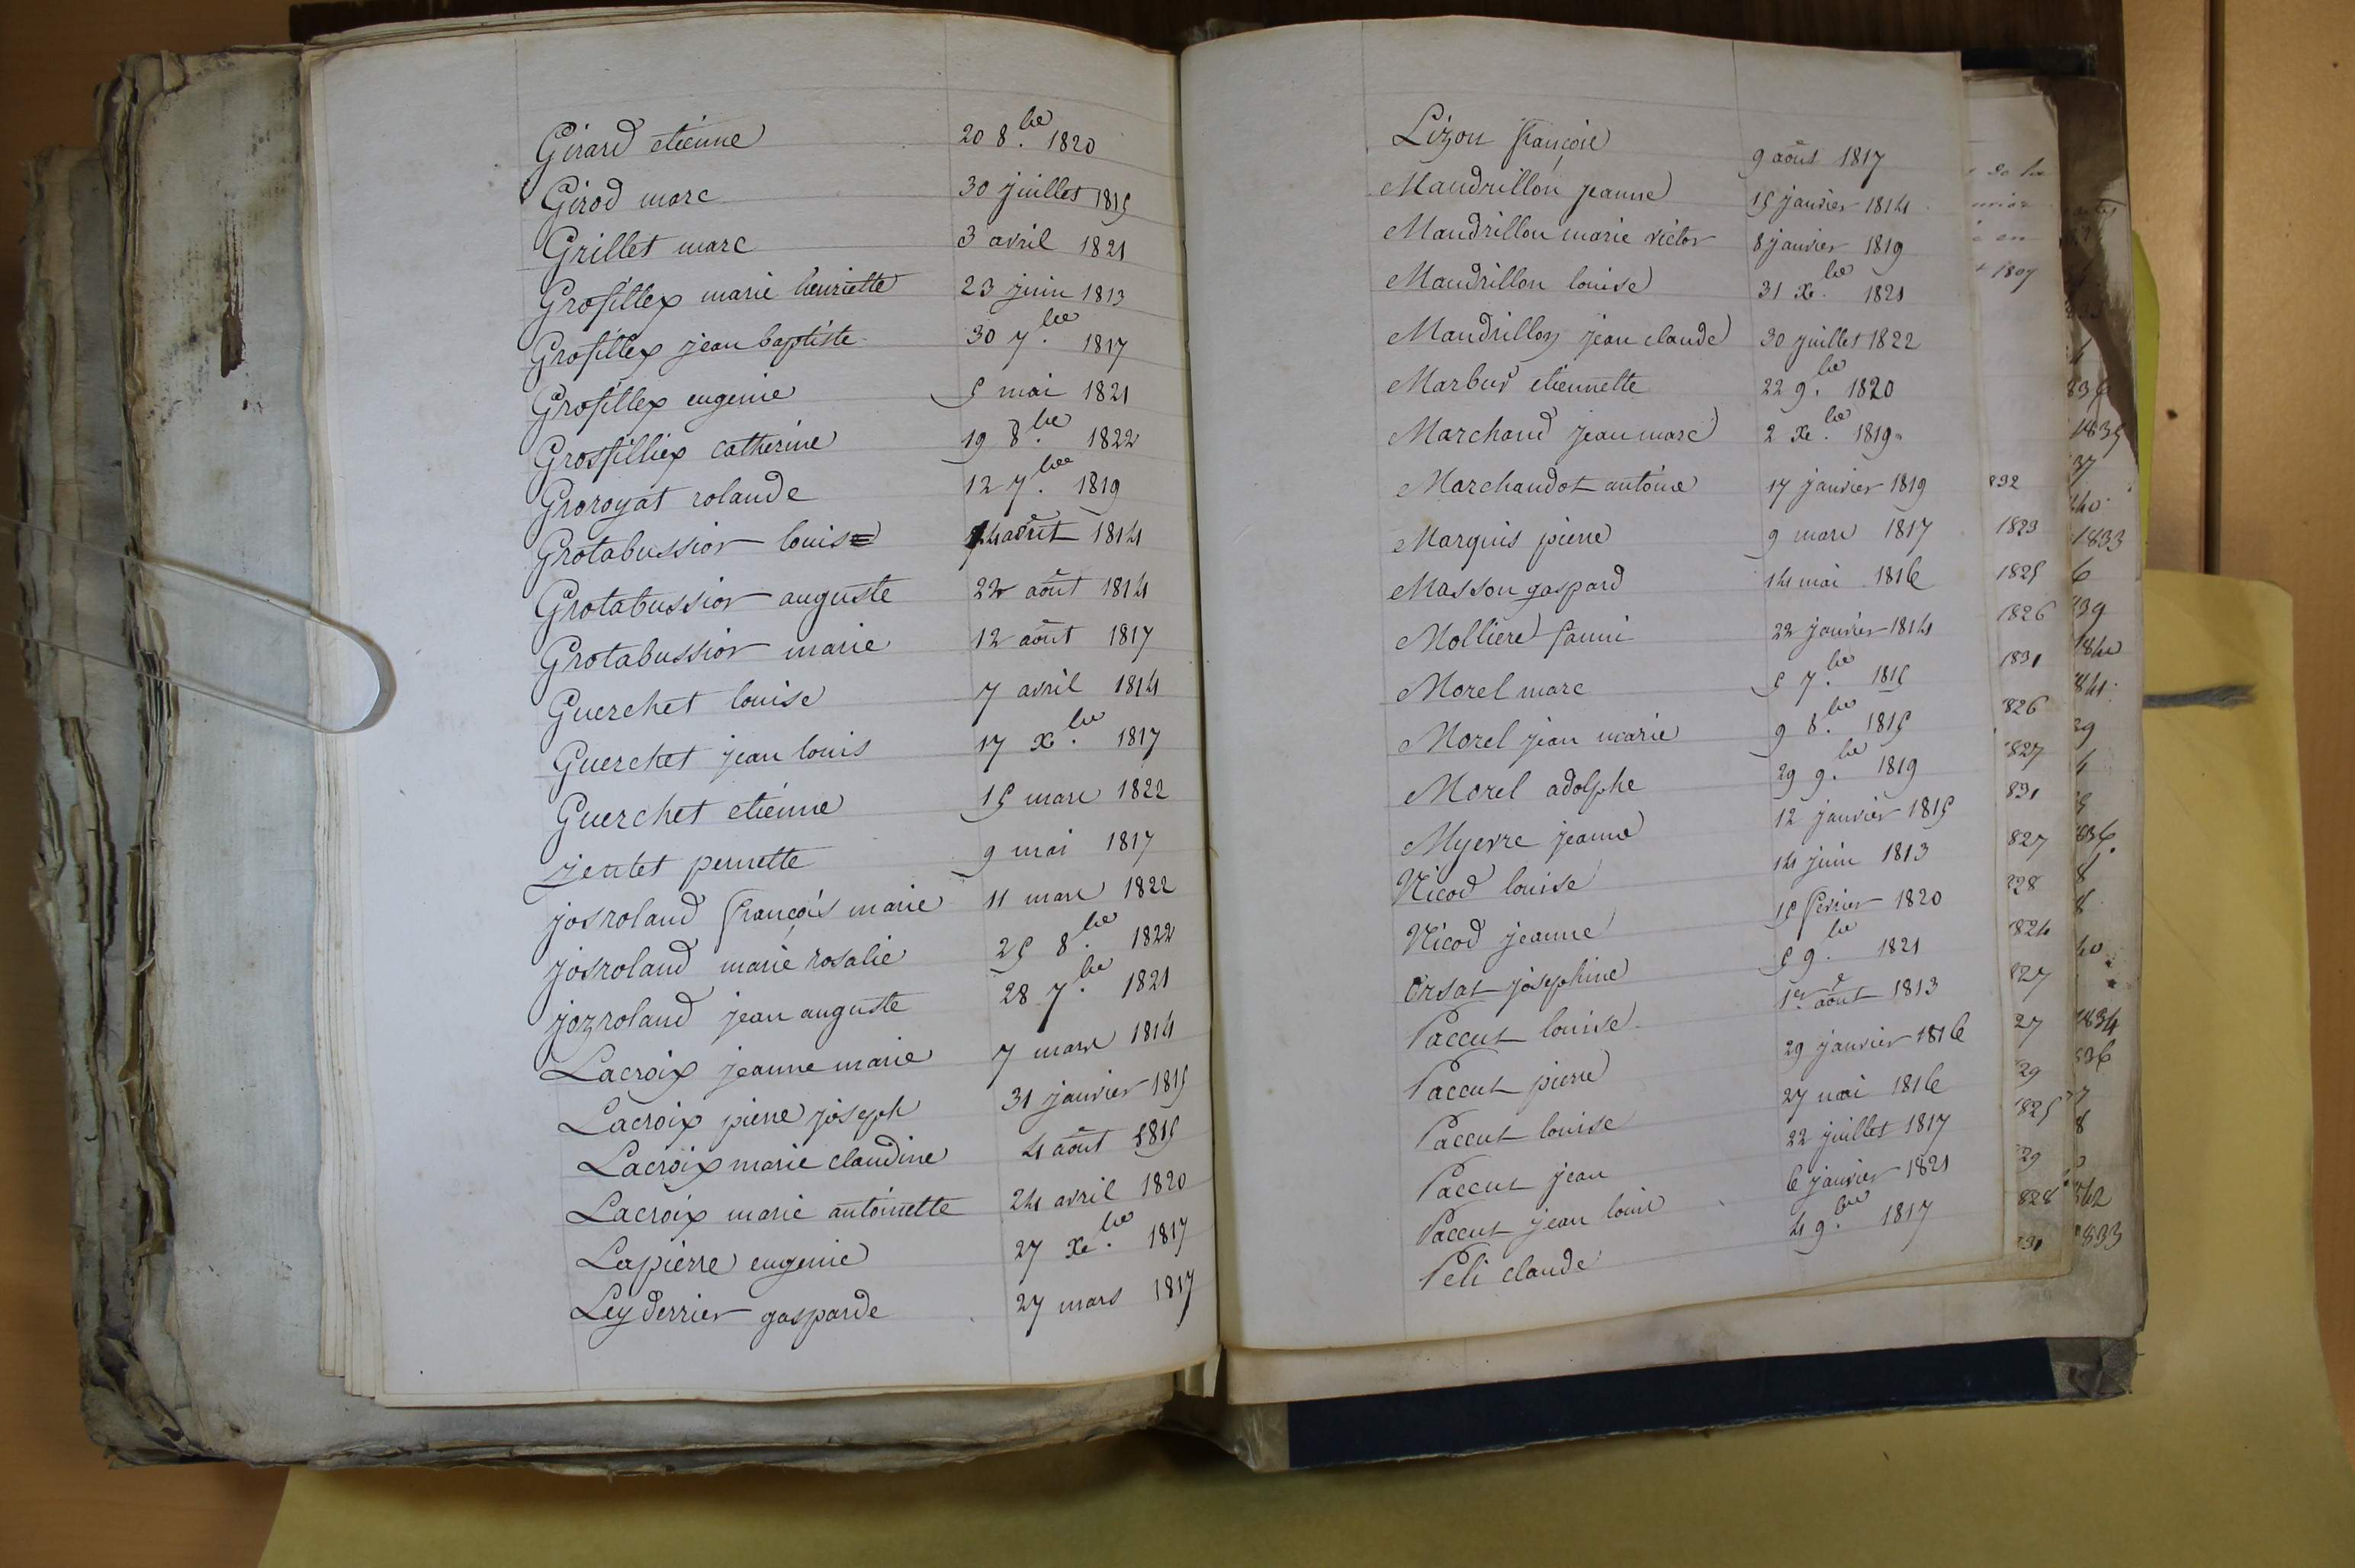 Girard etienne 20 8.bre 1820
Girod marc 30 juillet 1815
Grillet marc 3 avril 1821
Grosfillex marie henriette 23 juin 1813
Grosfillex jean baptiste 30 7.bre 1817
Grosfillex eugenie 5 mai 1821
Grosfilliex catherine 19 8.bre 1822
Groroyat rolande 12 7.bre 1819
Grotabussior louise 14 août 1814
Grotabussior auguste 22 août 1814
Grotabussior marie 12 août 1817
Guerchet louise 7 avril 1814
Guerchet jean louis 17 xe.bre 1817
Guerchet etienne 15 mars 1822
jentet pernette 9 mai 1817
josroland françois marie 11 mars 1822
josroland marie rosalie 25 8.bre 1822
jozroland jean auguste 28 7.bre 1821
Lacroix jeanne marie 7 mars 1814
Lacroix pierre joseph 31 janvier 1815
Lacroix marie claudine 4 août 1815
Lacroix marie antoinette 24 avril 1820
Lapierre eugenie 27 xe.bre 1817
Leyderrier gasparde 27 mars 1817
Lizon françois 9 août 1817
Mandrillon jeanne 15 janvier 1814
Mandrillon marie victor 8 janvier 1819
Mandrillon louise 31 xe.bre 1821
Mandrillon jean claude 30 juillet 1822
Marbur etiennette 22 9.bre 1820
Marchand jean marc 2 xe.bre 1819
Marchandot antoine 17 janvier 1819
Marquis pierre 9 mars 1817
Masson gaspard 14 mai 1816
Molliere fanni 22 janvier 1814
Morel marc 5 7.bre 1815
Morel jean marie 9 8.bre 1815
Morel adolphe 29 9.bre 1819
Myevre jeanne 12 janvier 1815
Nicod louise 14 juin 1813
Nicod jeanne 15 fevrier 1820
Orsat josephine 5 9.bre 1821
Paccut louise 1er août 1813
Paccut pierre 29 janvier 1816
Paccut louise 27 mai 1816
Paccut jean 22 juillet 1817
Paccut jean louis 6 janvier 1821
Peli claude 4 9.bre 1817
de la
en
1807
832
1823
1825
1826
1831
826
827
831
827
28
824
827
27
29
825
29
828
31
1835
37
1833
6
39
1840
841
29
4
836
8
8
40
1834
836
7
8
842
1833